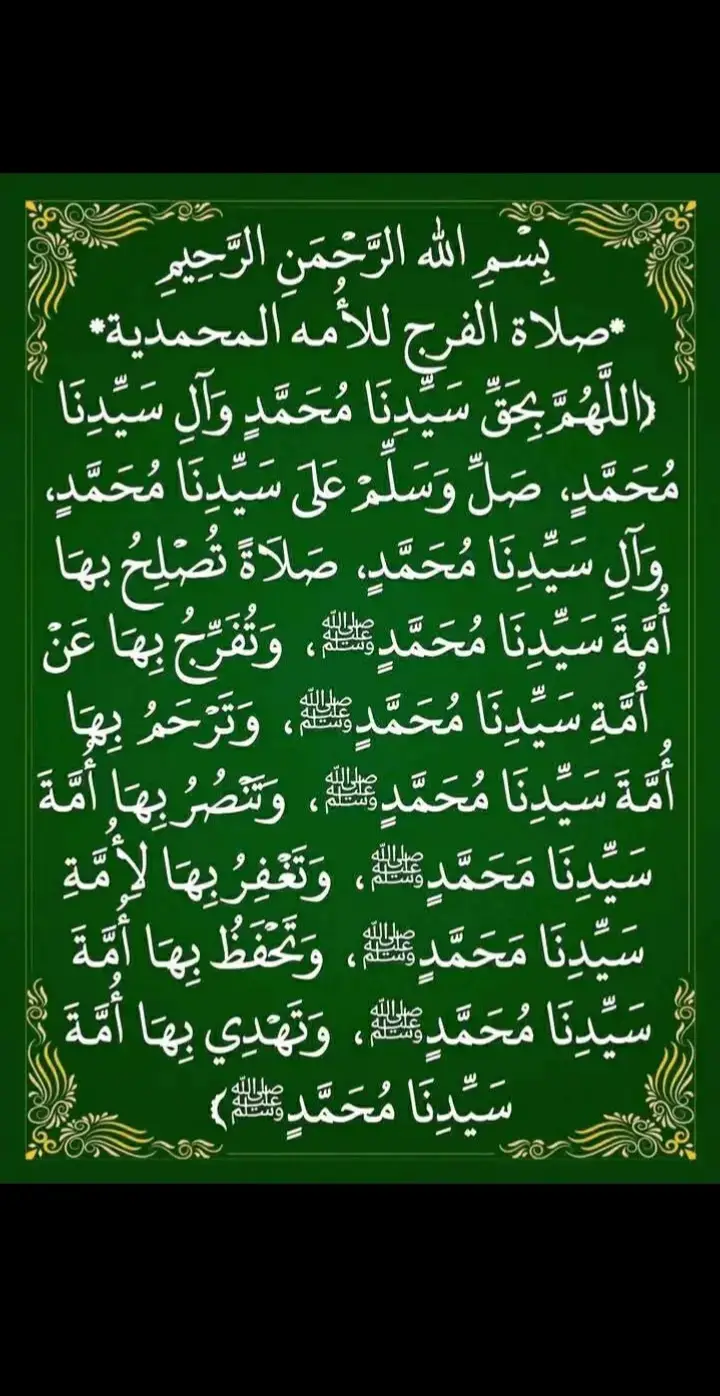 بِسْمِ الله الرَّحْمَنِ الرَّحِيمِ
*صلاة الفرج للأُمه المحمدية*
﴿اللَّهُمَّ بِحَقِّ سَيِّدِنَا مُحَمَّدٍ وَآلِ سَيِّدِنَا
مُحَمَّدٍ، صَلِّ وَسَلِّمْ عَلَى سَيِّدِنَا مُحَمَّدٍ،
وَآلِ سَيِّدِنَا مُحَمَّدٍ، صَلَاةً تُصْلِحُ بِهَا
أُمَّةَ سَيِّدِنَا مُحَمَّدٍ ﷺ، وَتُفَرِّجُ بِهَا عَنْ
أُمَّةِ سَيِّدِنَا مُحَمَّدٍ ﷺ، وَتَرْحَمُ بِهَا
أُمَّةَ سَيِّدِنَا مُحَمَّدٍ ﷺ، وَتَنْصُرُ بِهَا أُمَّةَ
سَيِّدِنَا مَحَمَّدٍ ﷺ، وَتَغْفِرُ بِهَا لِأُمَّةِ
سَيِّدِنَا مَحَمَّدٍ ﷺ، وَتَحْفَظُ بِهَا أُمَّةَ
سَيِّدِنَا مُحَمَّدٍ ﷺ، وَتَهْدِي بِهَا أُمَّةَ
سَيِّدِنَا مُحَمَّدٍ ﷺ﴾